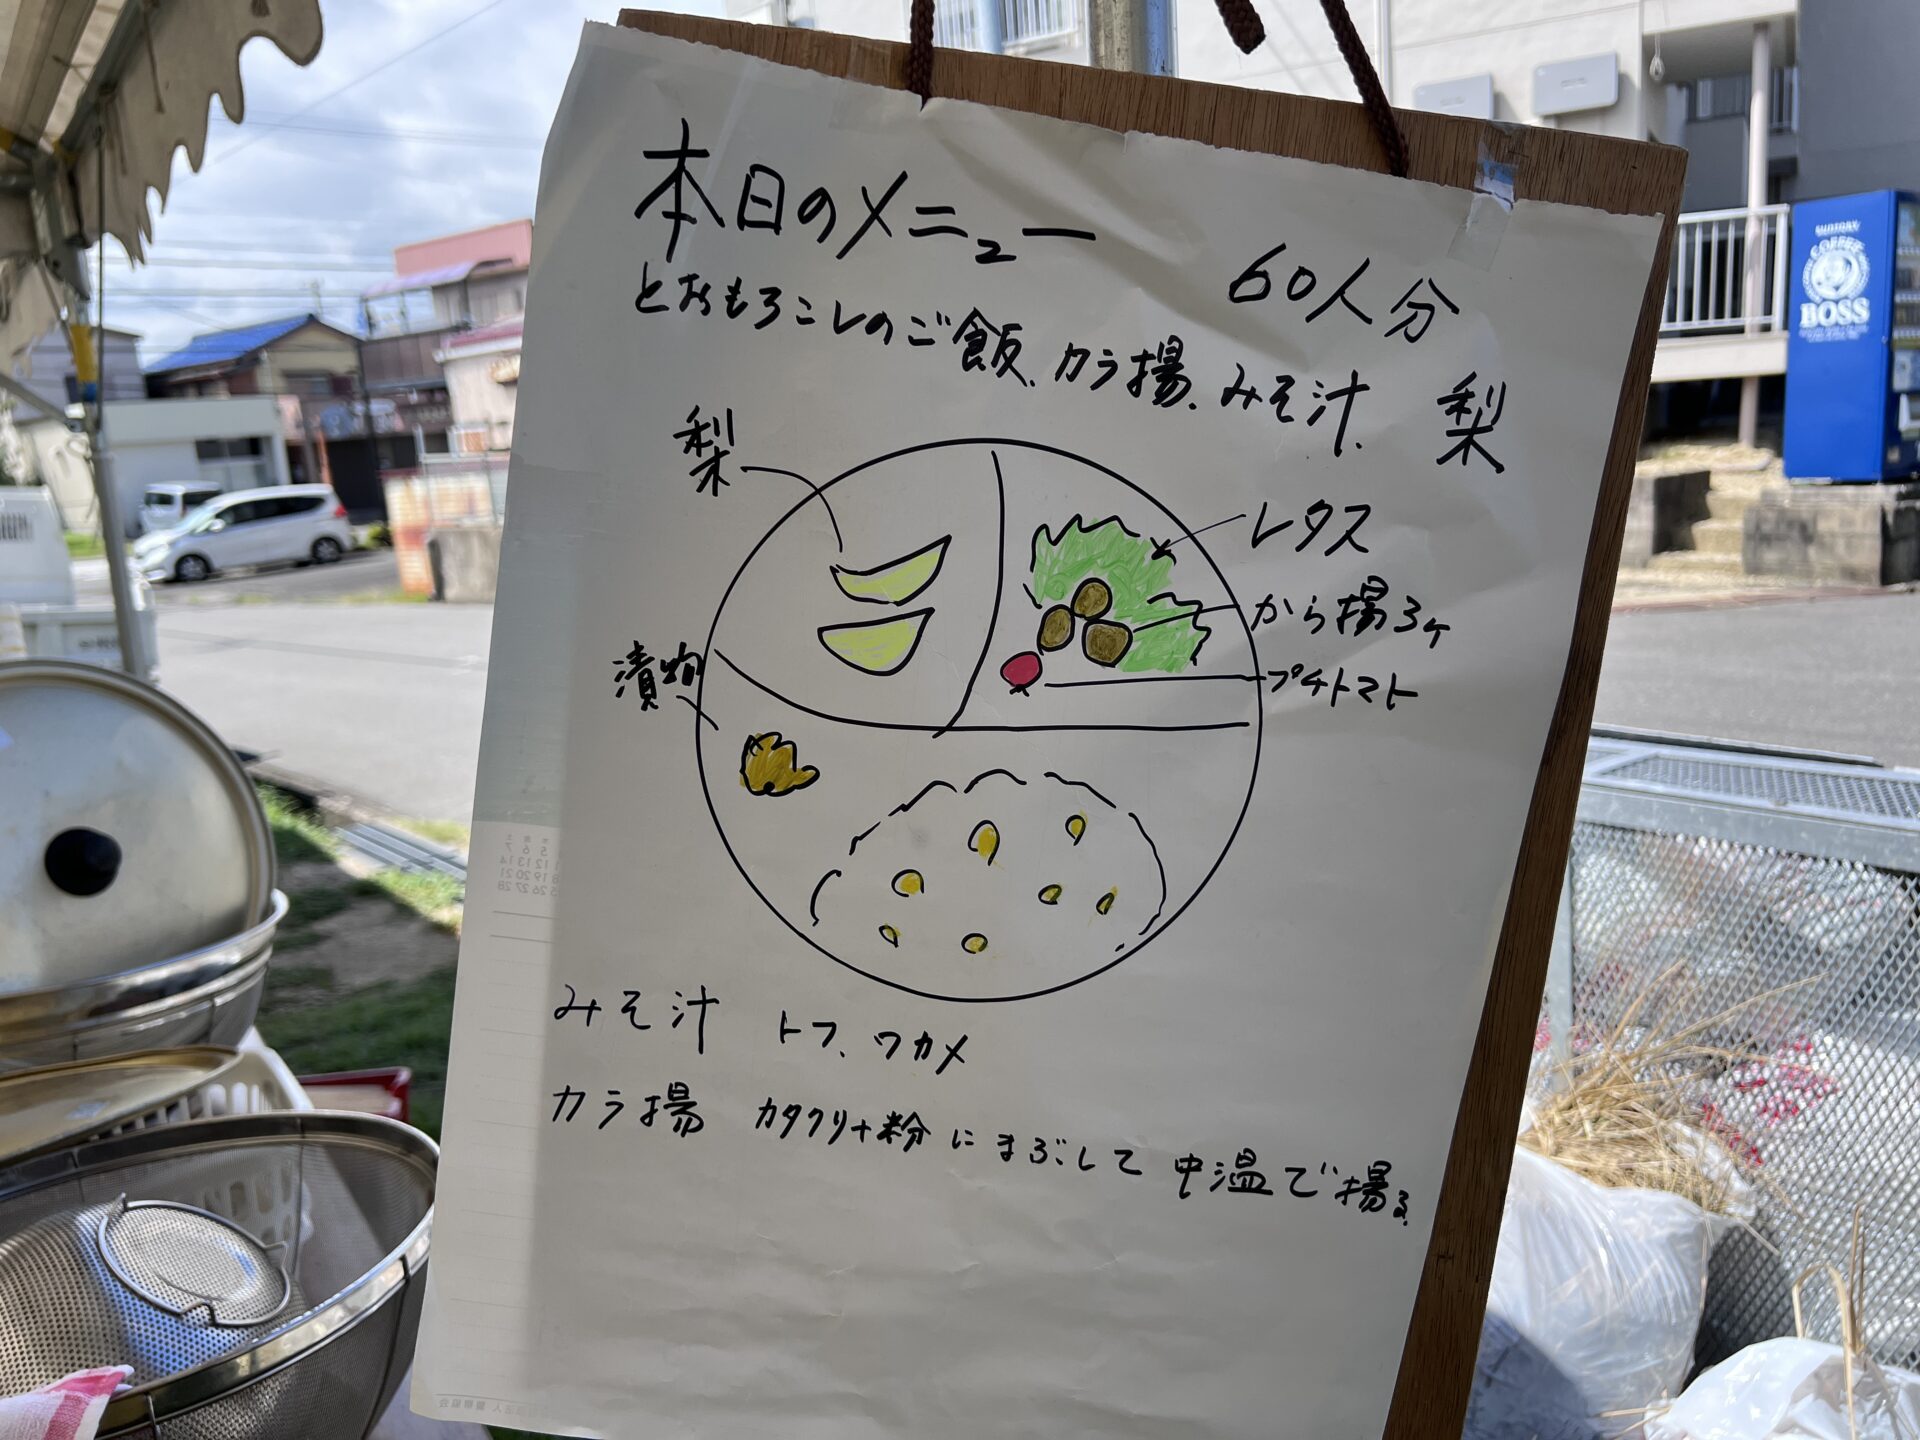 本日のメニュー
60人分
とおもろこしのご飯、カラ揚、みそ汁、梨
梨
レタス
から揚3ヶ
プチトマト
漬物
みそ汁 トフ、ワカメ
カラ揚 カタクリ+粉にまぶして中温で揚る。
SUNTORY
COFFEE
BOSS